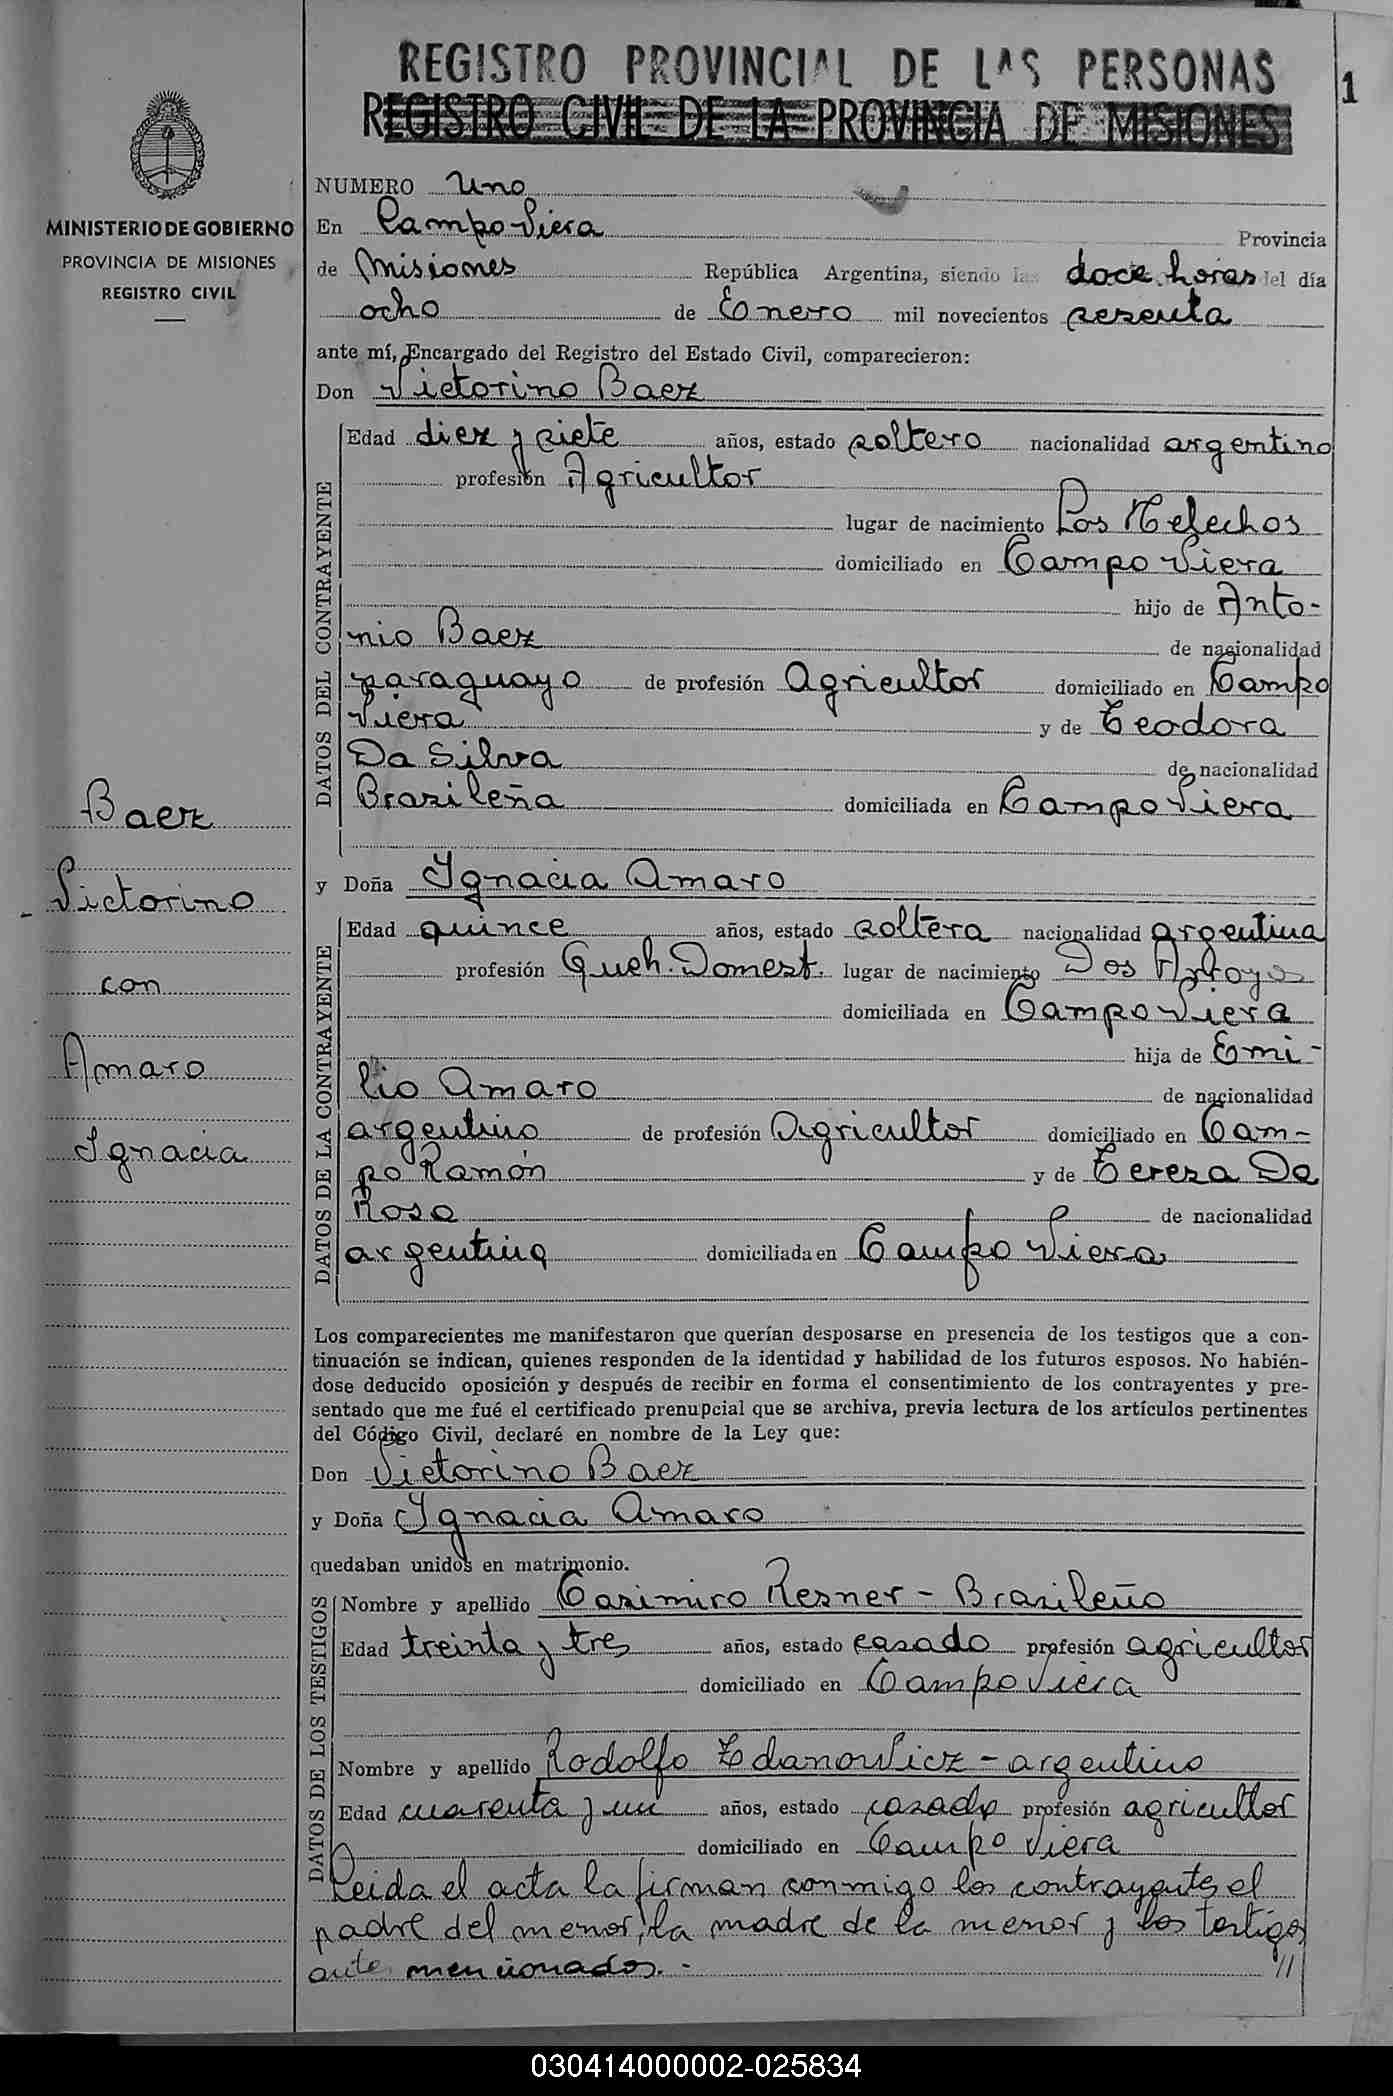 REGISTRO PROVINCIAL DE LAS PERSONAS
1
REGISTRO CIVIL DE LA PROVINCIA DE MISIONES
MINISTERIO DE GOBIERNO
PROVINCIA DE MISIONES
REGISTRO CIVIL
Baez
Victorino
con
Amaro
Ignacia
NUMERO Uno
En Campo Viera Provincia
de Misiones República Argentina, siendo las doce horas del día
ocho de Enero mil novecientos sesenta
ante mí, Encargado del Registro del Estado Civil, comparecieron:
Don Victorino Baez
DATOS DEL CONTRAYENTE
Edad diez y siete años, estado soltero nacionalidad argentino
profesión Agricultor
lugar de nacimiento Los Helechos
domiciliado en Campo Viera
hijo de Anto-
nio Baez de nacionalidad
paraguayo de profesión Agricultor domiciliado en Campo
Viera y de Teodora
Da Silva de nacionalidad
Brasileña domiciliada en Campo Viera
y Doña Ignacia Amaro
DATOS DE LA CONTRAYENTE
Edad quince años, estado soltera nacionalidad argentina
profesión Queh. Domest. lugar de nacimiento Dos Arroyos
domiciliada en Campo Viera
hija de Emi-
lio Amaro de nacionalidad
argentino de profesión Agricultor domiciliado en Cam-
po Ramón y de Tereza Da
Rosa de nacionalidad
argentina domiciliada en Campo Viera
Los comparecientes me manifestaron que querían desposarse en presencia de los testigos que a con-
tinuación se indican, quienes responden de la identidad y habilidad de los futuros esposos. No habién-
dose deducido oposición y después de recibir en forma el consentimiento de los contrayentes y pre-
sentado que me fué el certificado prenupcial que se archiva, previa lectura de los artículos pertinentes
del Código Civil, declaré en nombre de la Ley que:
Don Victorino Baez
y Doña Ignacia Amaro
quedaban unidos en matrimonio.
DATOS DE LOS TESTIGOS
Nombre y apellido Casimiro Rezner - Brasileño
Edad treinta y tres años, estado casado profesión agricultor
domiciliado en Campo Viera
Nombre y apellido Rodolfo Zdanovicz - argentino
Edad cuarenta y un años, estado casado profesión agricultor
domiciliado en Campo Viera
Leida el acta la firman conmigo los contrayentes, el
padre del menor, la madre de la menor y los testigos
ante mencionados. - //
030414000002-025834